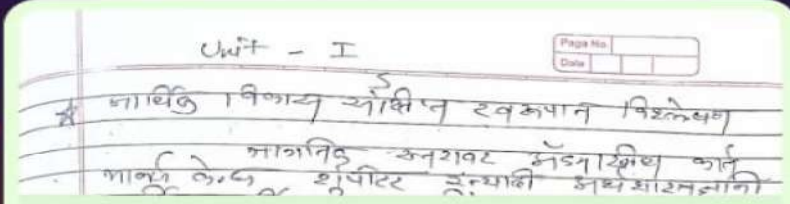 Unit - I
Page No.
Date
आर्थिक विकास संक्षिप्त स्वरूपात विश्लेषण
जागतिक स्तरावर अॅडमस्मिथ कार्ल
मार्क्स केन्स शुंपीटर इत्यादी अर्थशास्त्रज्ञांनी